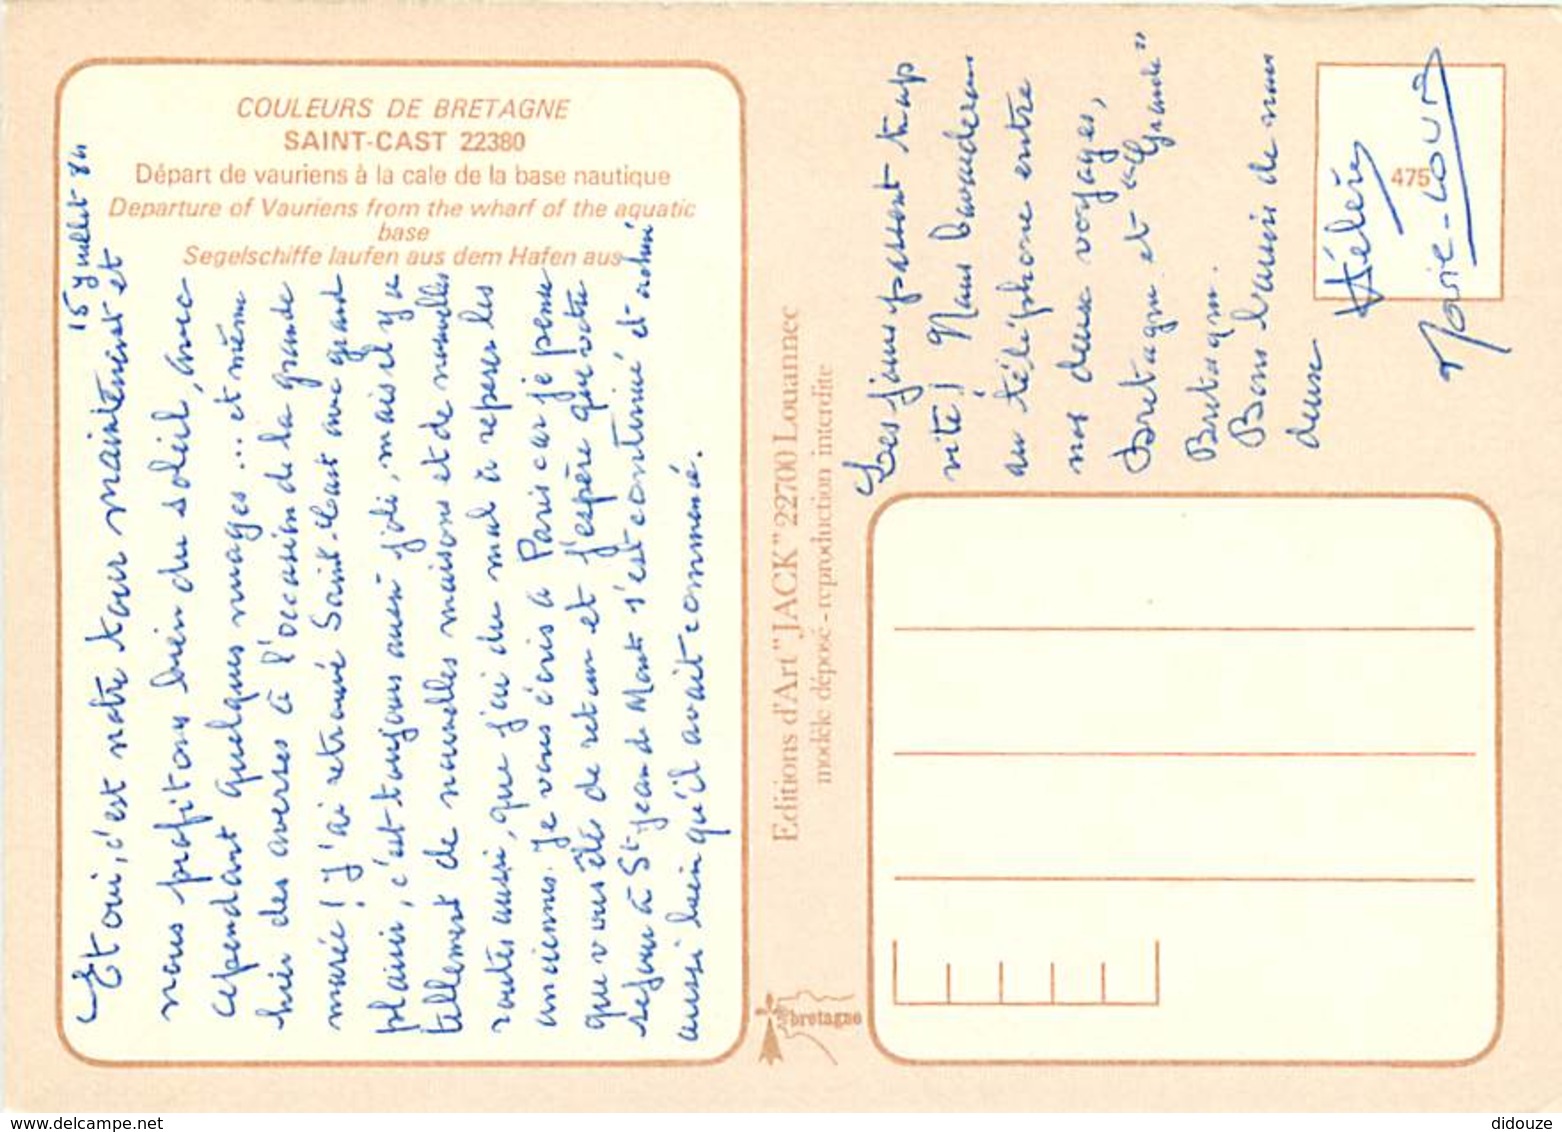 COULEURS DE BRETAGNE
SAINT-CAST 22380
Départ de vauriens à la cale de la base nautique
Departure of Vauriens from the wharf of the aquatic
base
Segelschiffe laufen aus dem Hafen aus
15 juillet 84
Et oui, c'est notre tour maintenant et
nous profitons bien du soleil, avec
cependant quelques nuages... et même
hier des averses à l'occasion de la grande
marée ! J'ai retrouvé Saint-Cast avec grand
plaisir, c'est toujours aussi joli, mais il y a
tellement de nouvelles maisons et de nouvelles
routes aussi, que j'ai du mal à repérer les
anciennes. Je vous écris à Paris car je pense
que vous êtes de retour et j'espère que votre
séjour à St Jean de Monts s'est continué et achevé
aussi bien qu'il avait commencé.
Les jours passent trop
vite ! Nous
au téléphone entre
nos deux voyages,
Bretagne et "Grande"
Bretagne.
Bons baisers de nous
deux
Hélène
Marie-Laure
475
Editions d'Art "JACK" 22700 Louannec
modèle déposé - reproduction interdite
bretagne
didouze